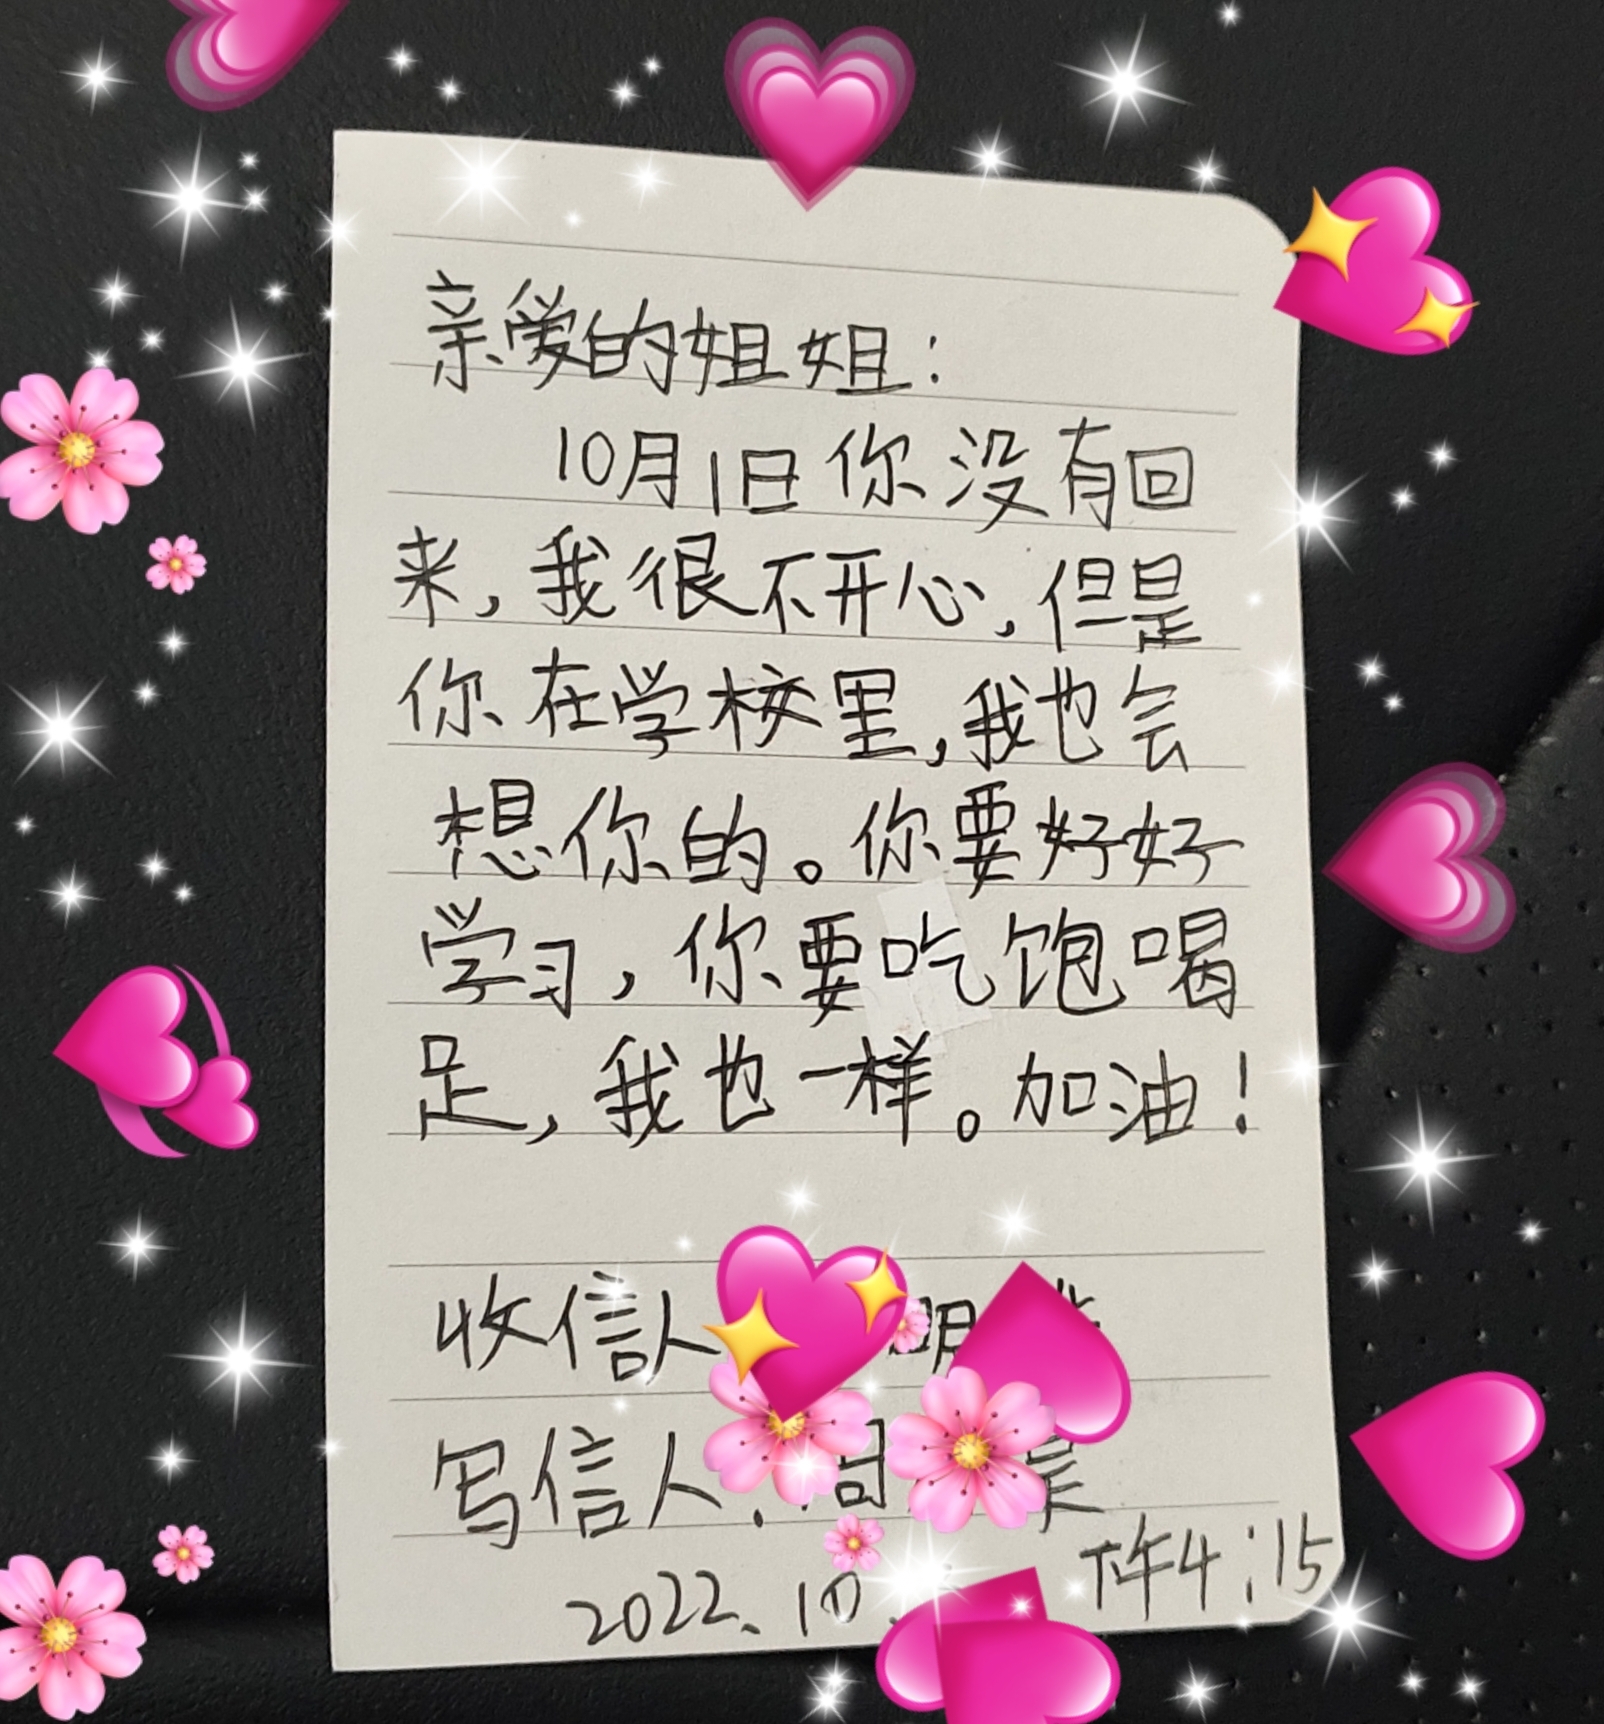 亲爱的姐姐：
10月1日你没有回
来，我很不开心，但是
你在学校里，我也会
想你的。你要好好
学习，你要吃饱喝
足，我也一样。加油！
收信人
写信人：
下午4:15
2022.10.